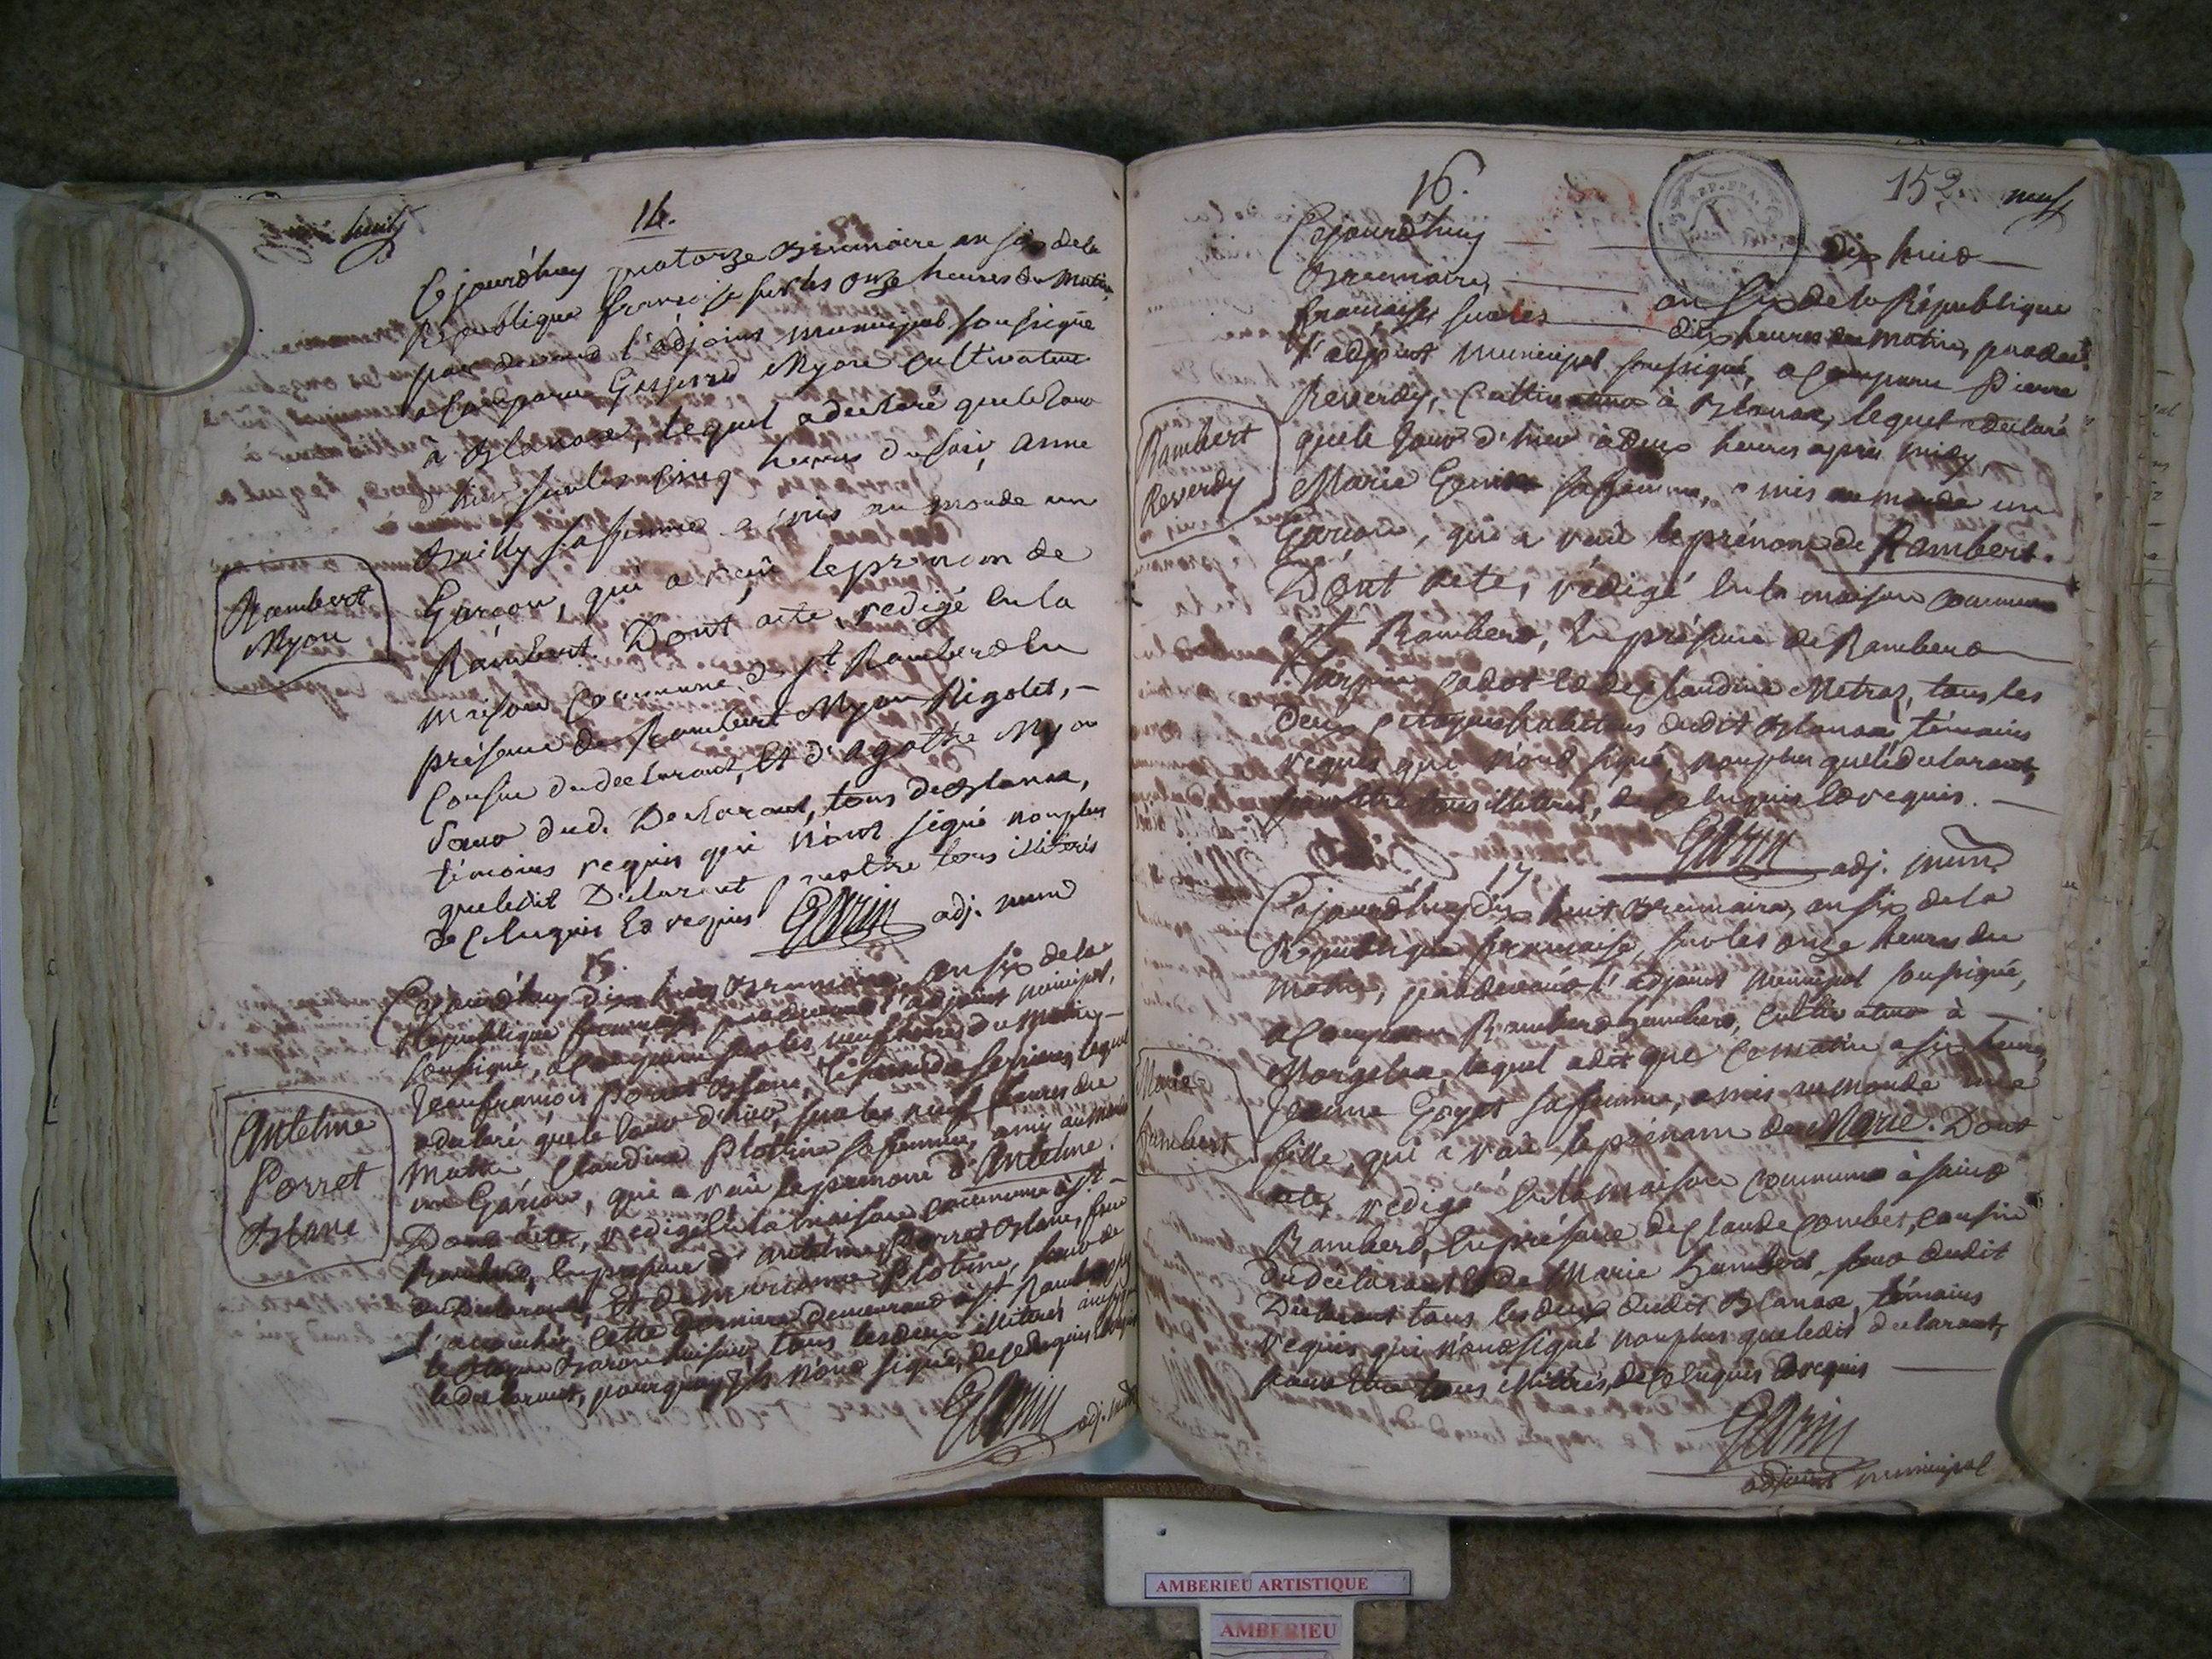 huit
14.
Cejourd'huy quatorze Brumaire an six de la
République francoise sur les onze heures du matin,
par devant l'adjoint municipal soussigné
a comparu Myon cultivateur
à Blanaz, lequel a declaré que le jour
d'hier sur les cinq heures du soir, anne
Bailly sa femme a mis au monde un
Garcon, qui a reçu le prenom de
Rambert. Dont acte, redigé en la
maison Commune de st Rambert en
présence de Rambert Myon Rigolet, -
Cousin du declarant, et d'agathe Myon
Soeur dud. Declarant, tous de Blanaz,
témoins requis qui n'ont signé non plus
que ledit Declarant pour etre tous illiterés
de ce enquis et requis Garin adj. mun
Rambert
Myon
15.
Cejourd'huy dix huit Brumaire, an six de la
République francaise, pardevant l'adjoint municipal,
soussigné, a comparu sur les neuf heures du matin -
Jean francois Porret Blanc, lequel
a declaré que le jour d'hier, sur les neuf heures du
matin Claudine Plottine sa femme, a mis au monde
un Garcon, qui a reçu le prenom d'Antelme.
Dont acte, redigé en la maison commune à st -
Rambert, en presence d'antelme Porret Blanc, frere
du Declarant, et de marianne Plotine, soeur de
l'accouchée, cette derniere demeurant à st Rambert
tous les deux illiterés ainsi que
le declarant, pourquoy ils n'ont signé, de ce enquis et requis
Garin adj. mun
Antelme
Porret
Blanc
16.
152. neuf
Cejourd'huy dix huit
Brumaire, an six de la République
francaise sur les dix heures du matin, par devt
l'adjoint municipal soussigné, a comparu Pierre
Reverdy, Cultivateur à Blanaz, lequel a declaré
que le jour d'hier à deux heures après midy
Marie sa femme, a mis au monde un
Garcon, qui a reçu le prénom de Rambert.
Dont acte, rédigé en la maison commune
st Rambert, en présence de Rambert
Cadot et de Claudine Metraz, tous les
deux habitans dudit Blanaz, témoins
requis qui n'ont signé, non plus que le declarant,
pour être tous illiterés, de ce enquis et requis. -
Garin adj. mun
Rambert
Reverdy
17.
Cejourd'huy dix huit Brumaire, an six de la
République francaise, sur les onze heures du
matin, pardevant l'adjoint municipal soussigné,
a comparu Rambert humbert, Cultivateur à -
Morgelaz, lequel a dit que ce matin a six heures,
Jeanne sa femme, a mis au monde une
fille, qui a reçu le prénom de Marie. Dont
acte, redigé en la maison commune à saint
Rambert, en présence de Claude Combet, cousin
du déclarant et de Marie humbert soeur dudit
Déclarant tous les deux dudit Blanaz, témoins
requis qui n'ont signé non plus que ledit declarant,
pour être tous illitérés, de ce enquis et requis
Garin
adjoint municipal
Marie
humbert
AMBERIEU ARTISTIQUE
AMBERIEU